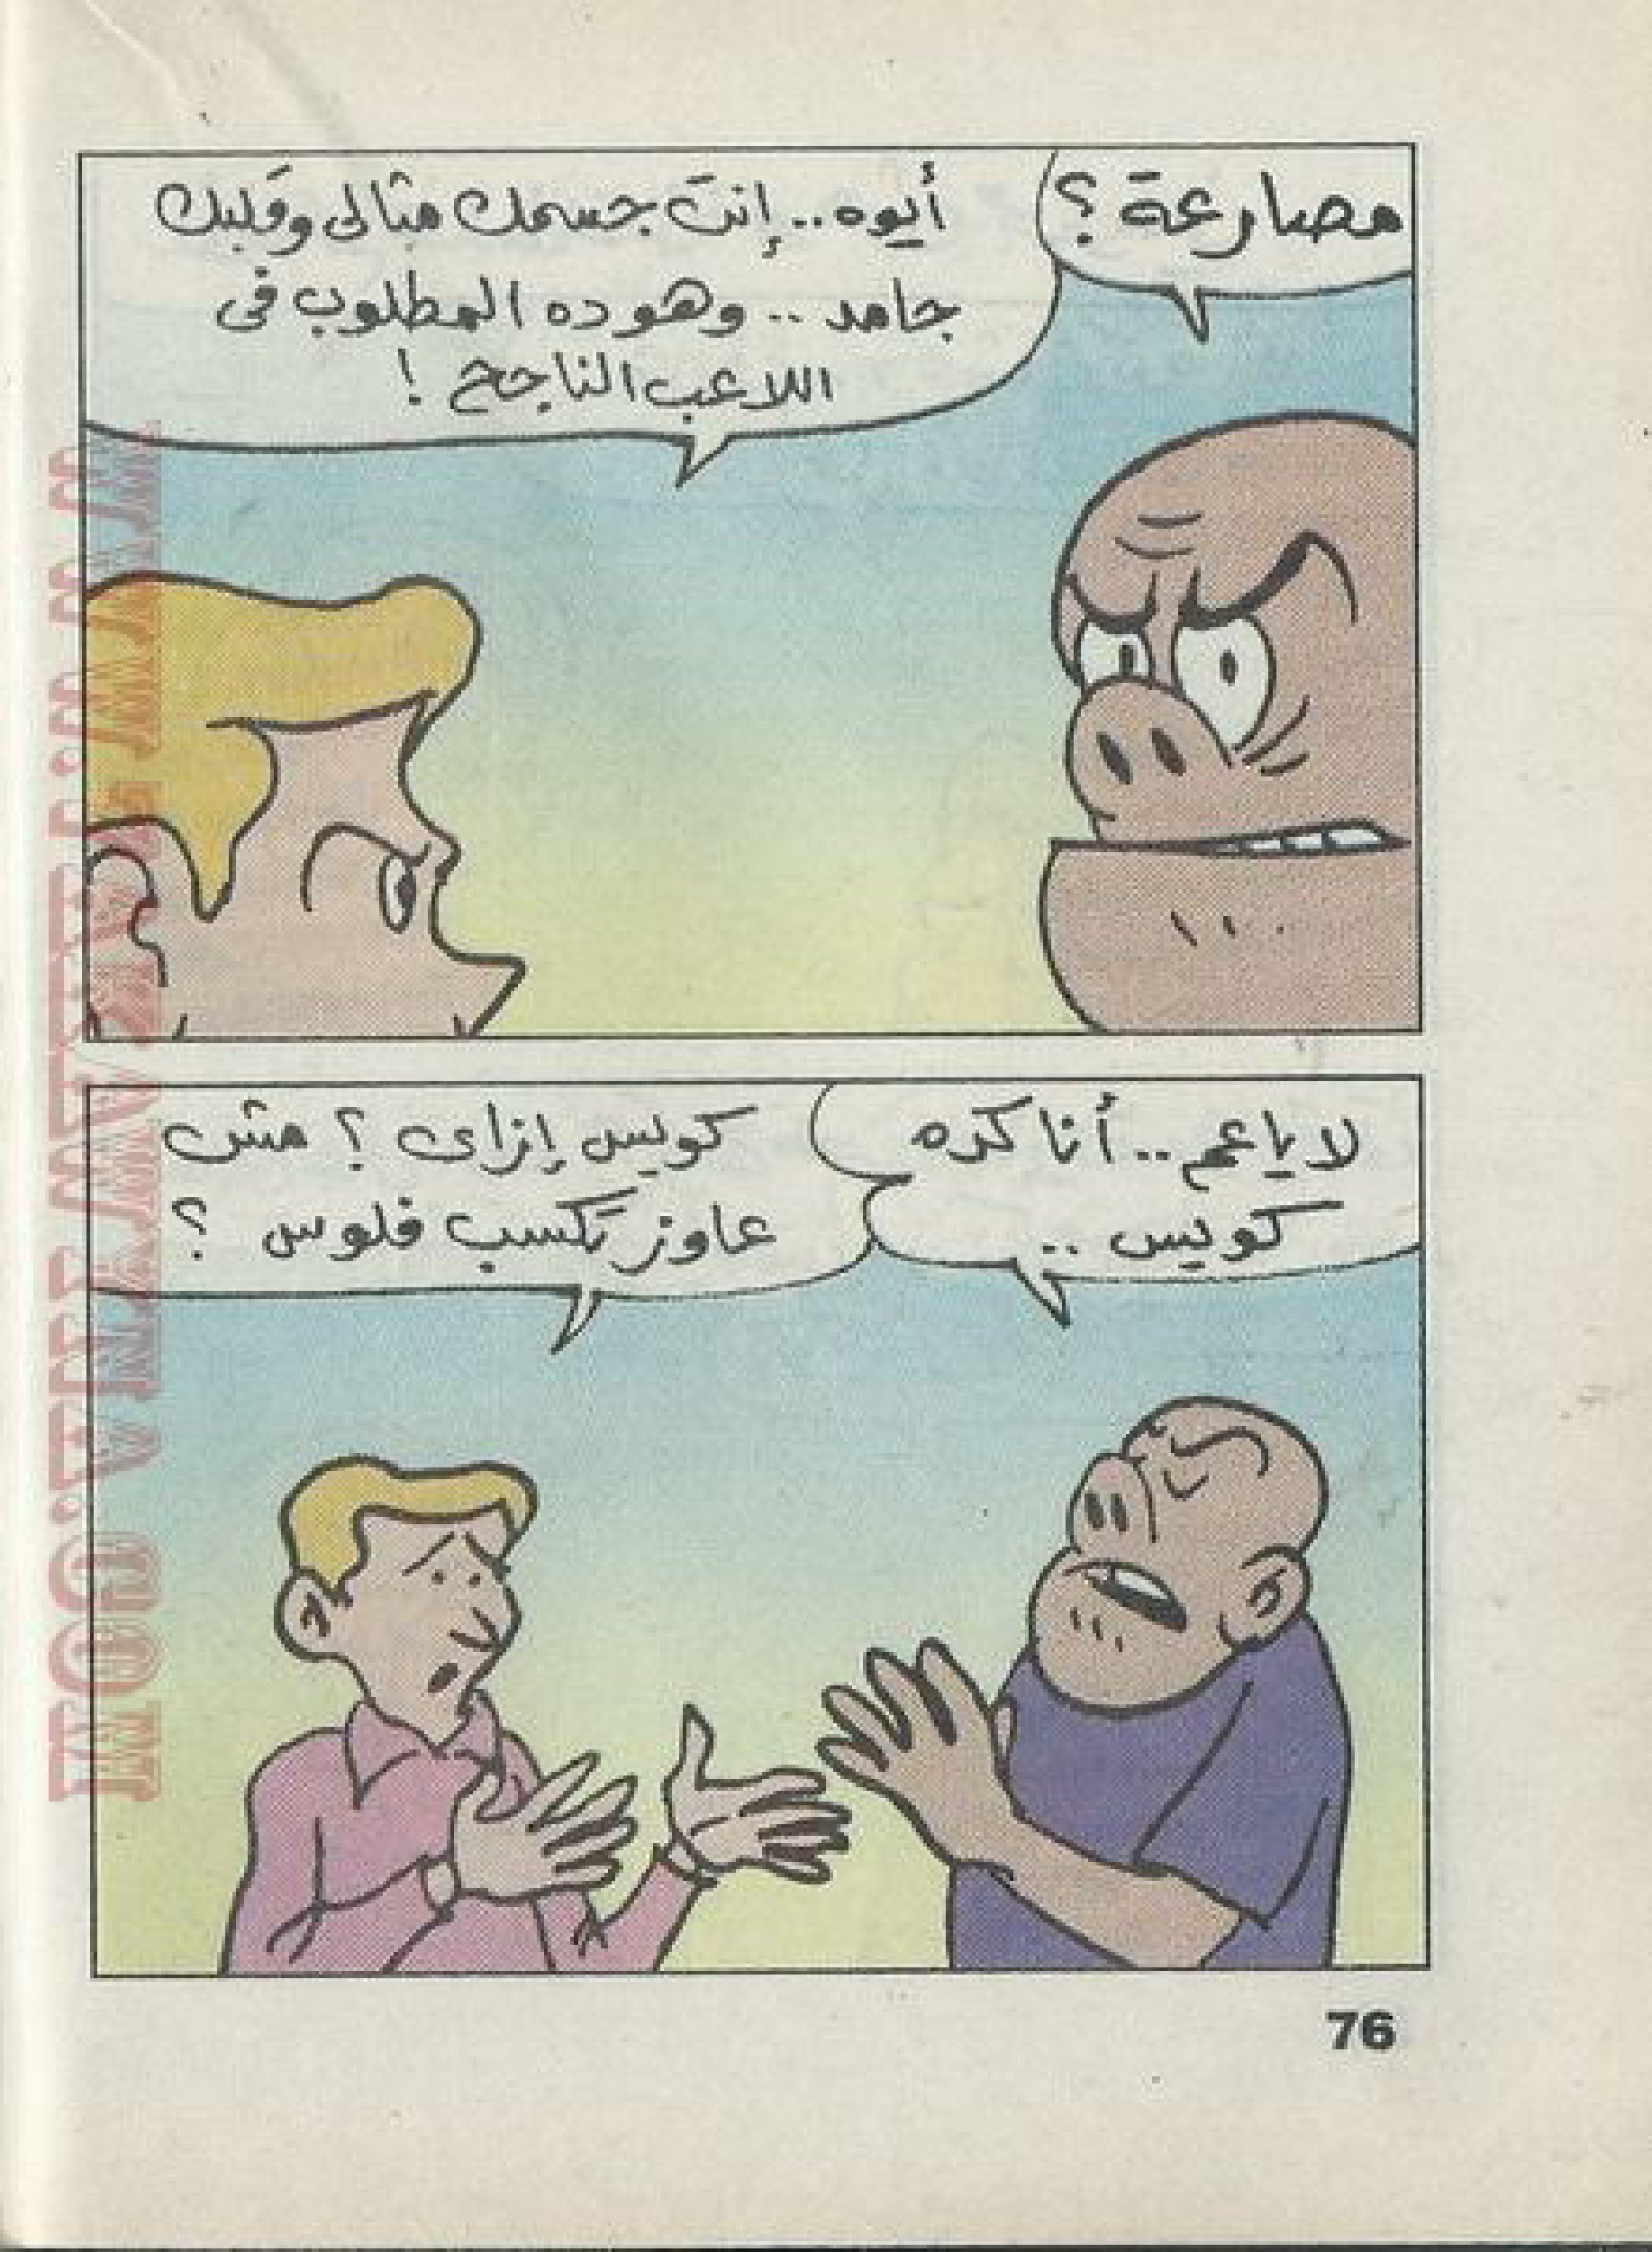 مصارعة ؟
أيوه .. إنتَ جسمك مثالى وقَلبك
جامد .. وهو ده المطلوب فى
اللاعب الناجح !
لا يا عم .. أنا كده
كويس ..
كويس إزاى ؟ مش
عاوز تِكسب فلوس ؟
76